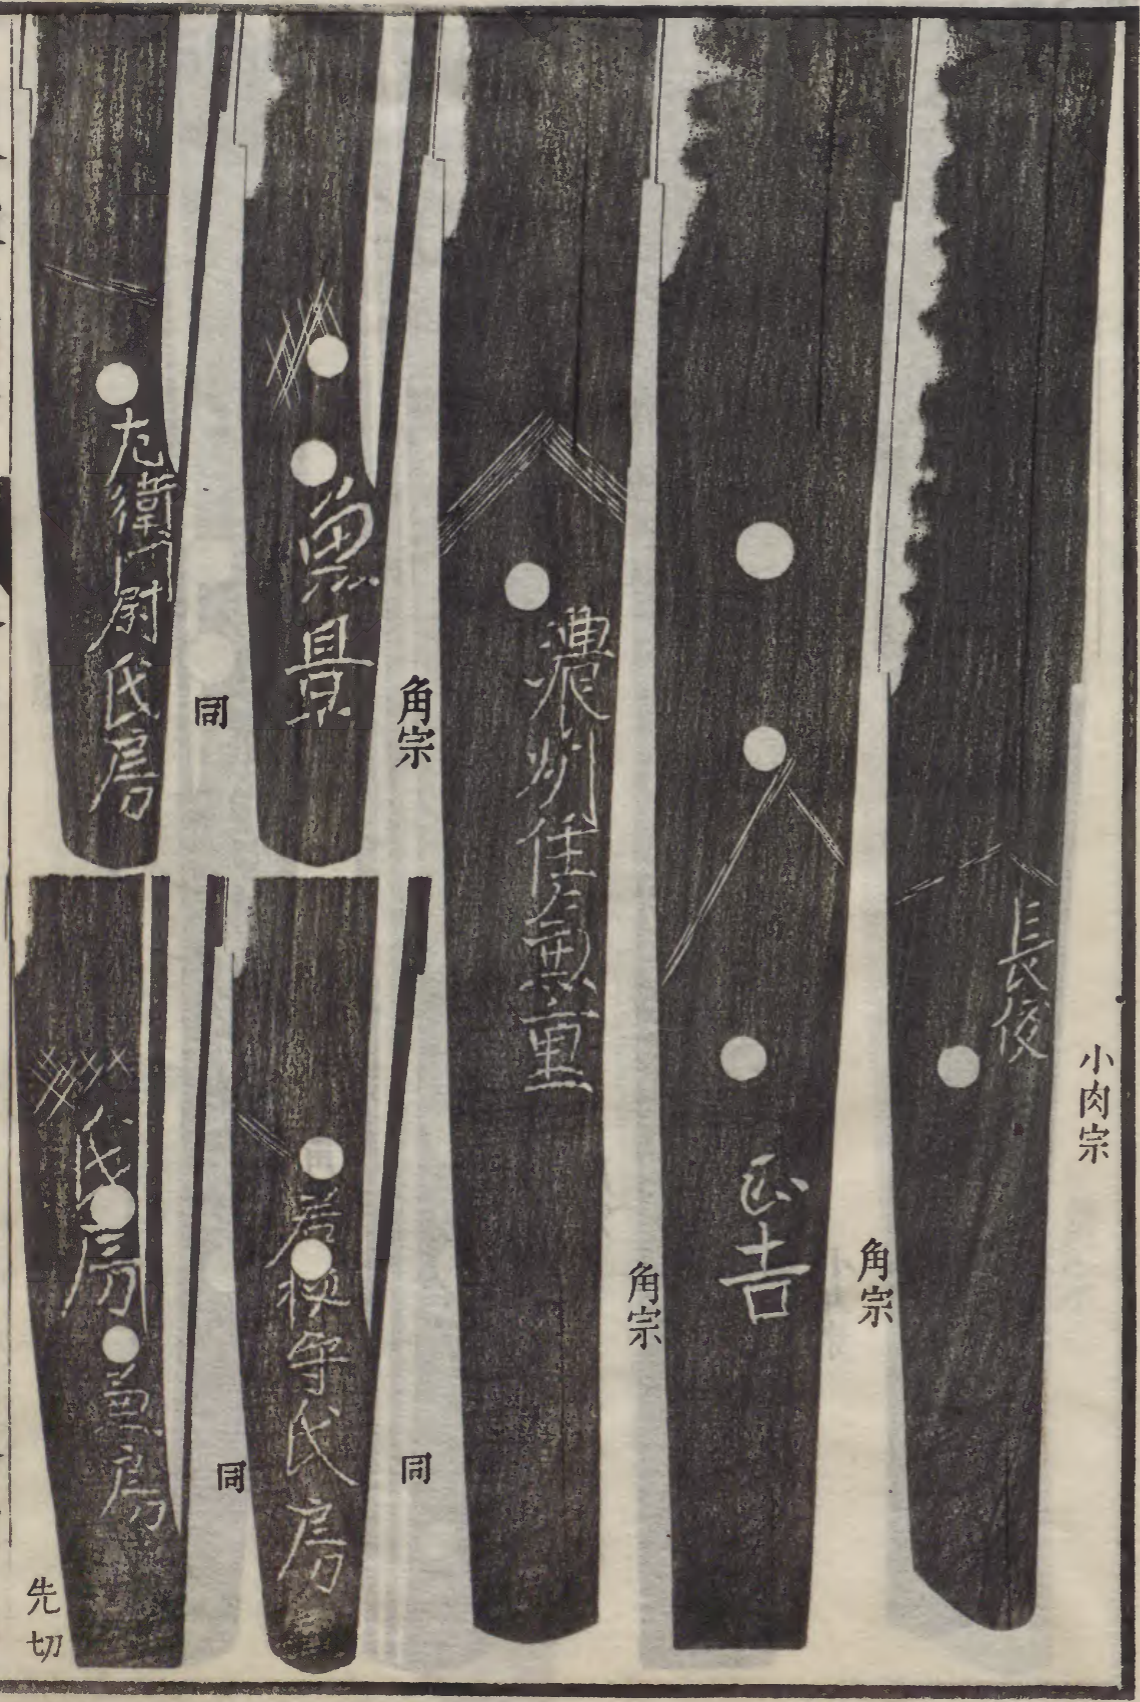 小肉宗
長俊
角宗
正吉
角宗
濃州住兼重
角宗
兼景
同
左衛門尉氏房
同
若狭守氏房
同
氏房
兼房
先切